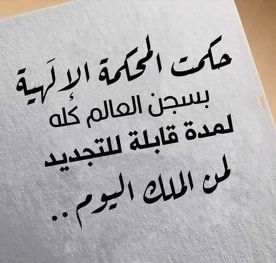 حكمت المحكمة الإلَهية
بسجن العالم كله
لمدة قابلة للتجديد
لمن الملك اليوم ..